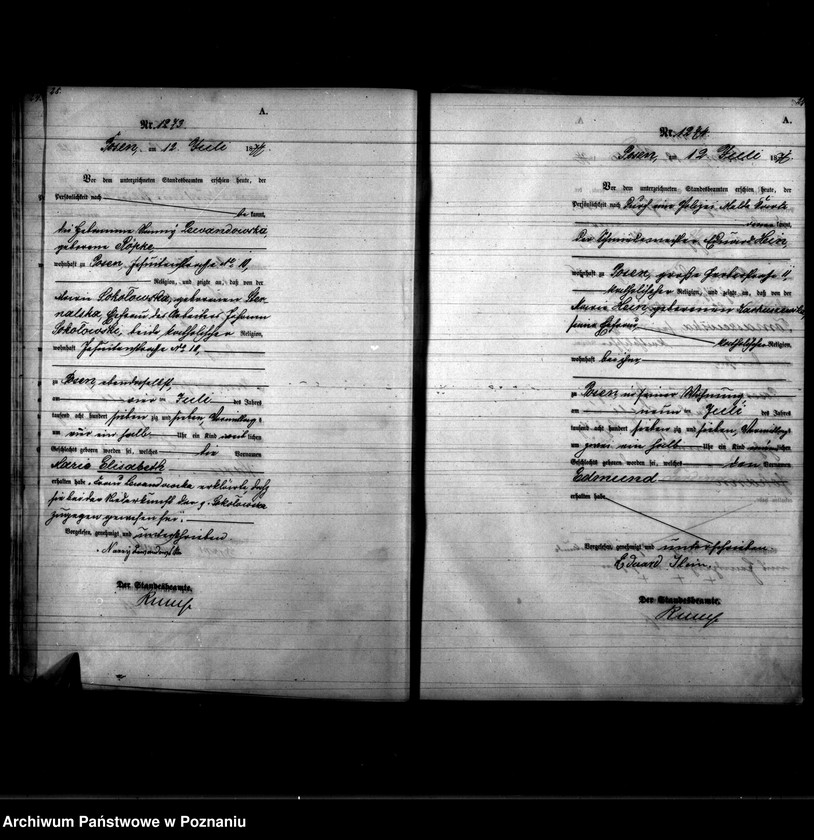 A.
Nr. 1273.
Posen, am 12 Juli 1877.
Vor dem unterzeichneten Standesbeamten erschien heute, der
Persönlichkeit nach
bekannt,
die Hebamme Nanny Lewandowska
geborene Röpke
wohnhaft zu Posen, Jesuitenstraße No 10,
Religion, und zeigte an, daß von der
Maria Sokołowska, geborenen
Ehefrau des Arbeiters Johann
Sokołowski, beide katholischer Religion,
wohnhaft Jesuitenstraße No 10,
zu Posen, ebendaselbst
am Juli des Jahres
tausend acht hundert siebenzig und sieben, Vormittags
um vier ein halb Uhr ein Kind weiblichen
Geschlechts geboren worden sei, welches die Vornamen
Maria Elisabeth
erhalten habe. Frau Lewandowska erklärte, daß
sie bei der Niederkunft der p. Sokołowska
zugegen gewesen sei.
Vorgelesen, genehmigt und unterschrieben
Nanny Lewandowska
Der Standesbeamte.
A.
Nr. 1274.
Posen, am 12 Juli 1877.
Vor dem unterzeichneten Standesbeamten erschien heute, der
Persönlichkeit nach durch eine Polizei Melde Karte
kannt,
der Schmiedemeister Eduard
wohnhaft zu Posen, große Gerberstraße
katholischer Religion, und zeigte an, daß von der
Maria geborenen
seiner Ehefrau
katholischer Religion,
wohnhaft bei ihm,
zu Posen, in seiner Wohnung
am neun Juli des Jahres
tausend acht hundert siebenzig und sieben, Vormittags
um zwei ein halb Uhr ein Kind männlichen
Geschlechts geboren worden sei, welches den Vornamen
Edmund
erhalten habe.
Vorgelesen, genehmigt und unterschrieben
Eduard
Der Standesbeamte.
Archiwum Państwowe w Poznaniu